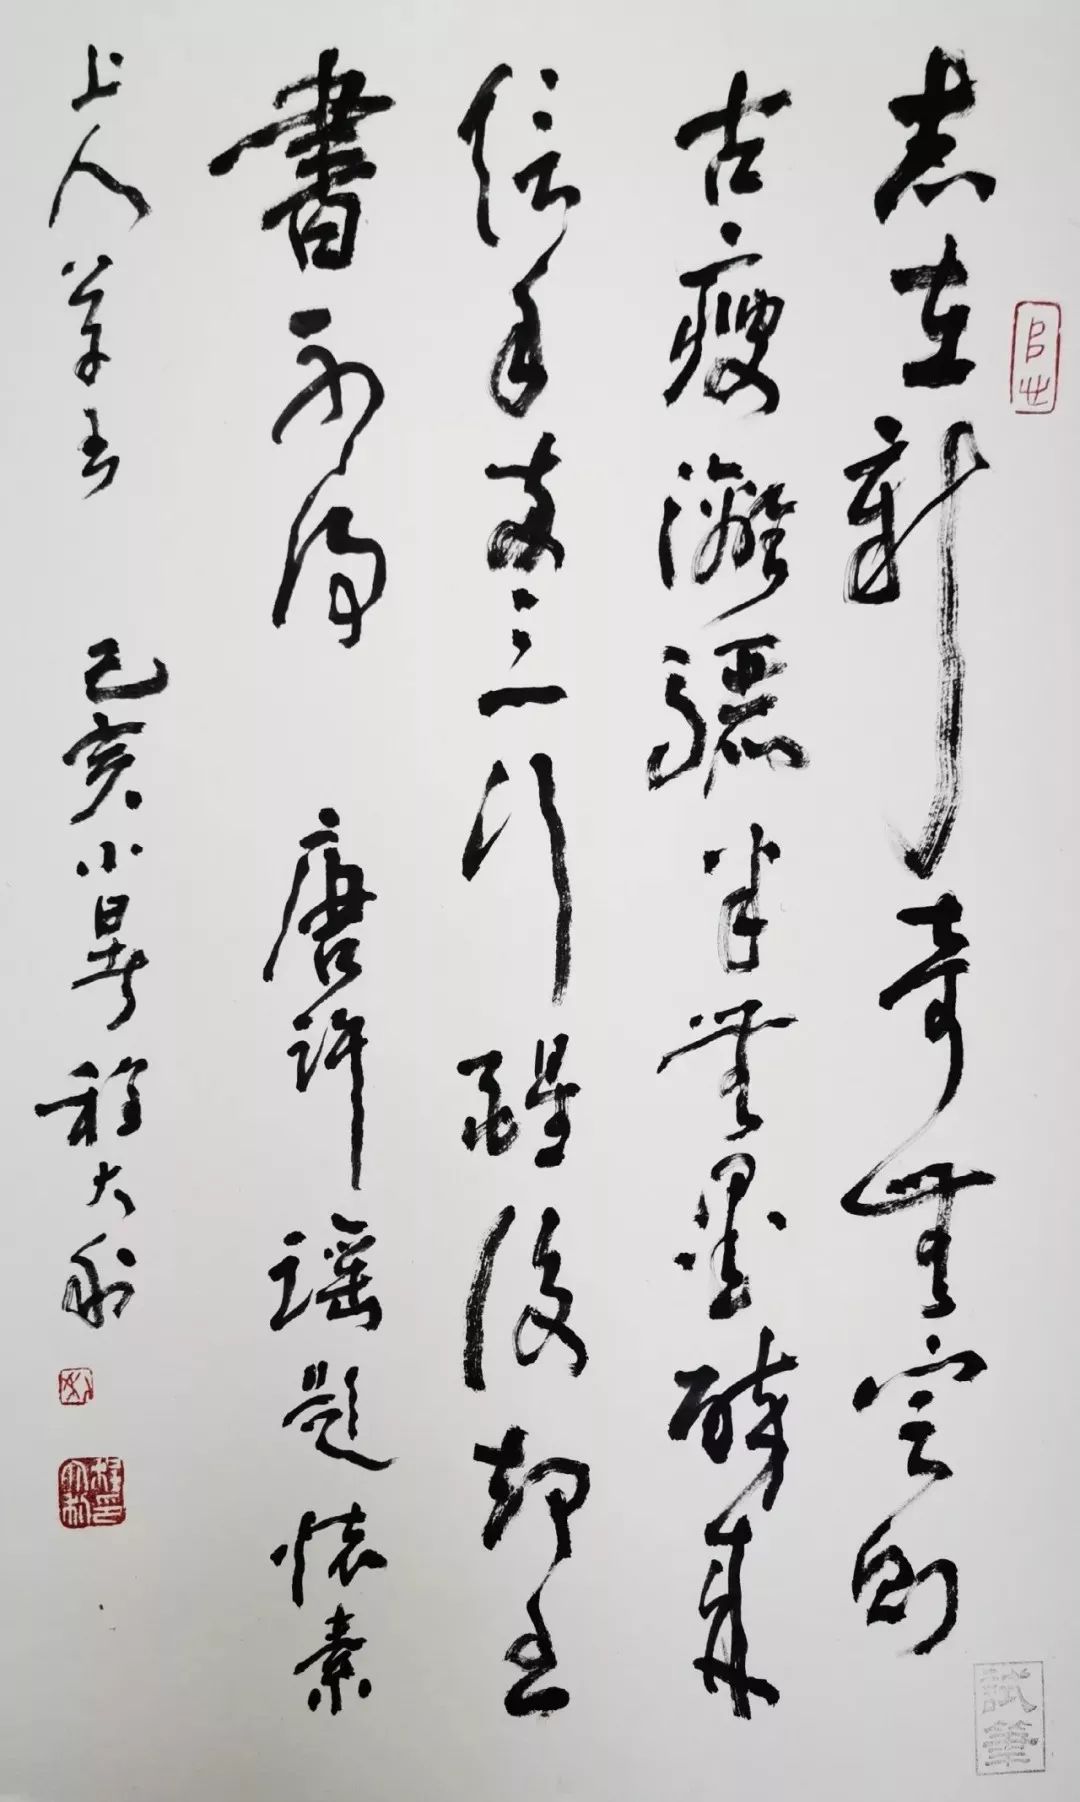 志在新奇無定則
古瘦灕驪半無墨醉來
信手两三行醒後却書
書不得 唐許謠題懷素
上人草書 己亥小暑 程大利
試筆